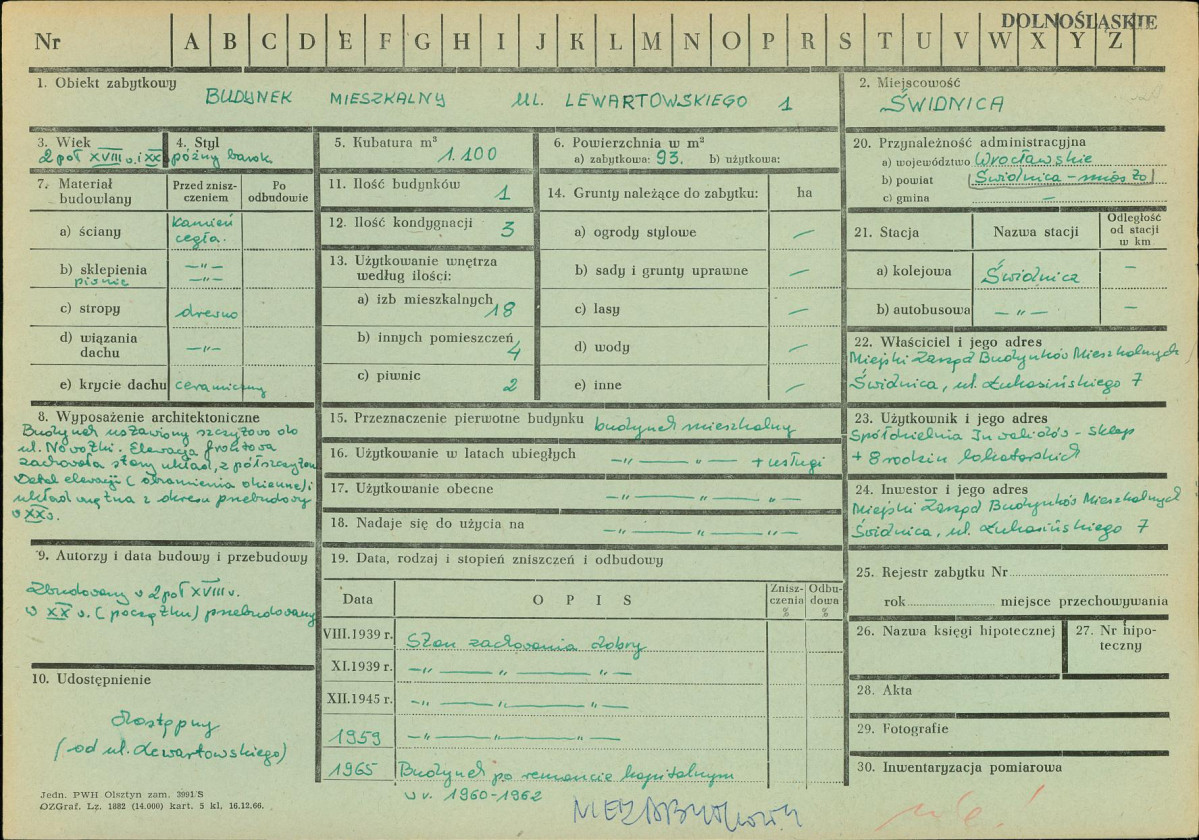 DOLNOŚLĄSKIE
Nr A B C D E F G H I J K L M N O P R S T U V W X Y Z
1. Obiekt zabytkowy
BUDYNEK MIESZKALNY UL. LEWARTOWSKIEGO 1
2. Miejscowość
ŚWIDNICA
3. Wiek
2 poł XVIII w. i XX
4. Styl
późny barok
5. Kubatura m³
1.100
6. Powierzchnia w m²
a) zabytkowa: 93. b) użytkowa:
20. Przynależność administracyjna
a) województwo Wrocławskie
b) powiat (Świdnica – miasto)
c) gmina —
7. Materiał budowlany
Przed zniszczeniem
Po odbudowie
a) ściany kamień cegła.
b) sklepienia —„—
piwnic —„—
c) stropy drewno
d) wiązania dachu —„—
e) krycie dachu ceramiczny
11. Ilość budynków 1
12. Ilość kondygnacji 3
13. Użytkowanie wnętrza według ilości:
a) izb mieszkalnych 18
b) innych pomieszczeń 4
c) piwnic 2
14. Grunty należące do zabytku: ha
a) ogrody stylowe —
b) sady i grunty uprawne —
c) lasy —
d) wody —
e) inne —
21. Stacja Nazwa stacji Odległość od stacji w km
a) kolejowa Świdnica —
b) autobusowa —„— —
22. Właściciel i jego adres
Miejski Zarząd Budynków Mieszkalnych
Świdnica, ul. Łukasińskiego 7
8. Wyposażenie architektoniczne
Budynek ustawiony szczytowo do
ul. Nowotki. Elewacja frontowa
zachowała stary układ, z półszczytem
Detal elewacji (obramienia okienne) i
układ wnętrza z okresu przebudowy
w XX w.
15. Przeznaczenie pierwotne budynku budynek mieszkalny
16. Użytkowanie w latach ubiegłych —„— —„— + usługi
17. Użytkowanie obecne —„— —„— —„—
18. Nadaje się do użycia na —„— —„— —„—
23. Użytkownik i jego adres
Spółdzielnia Inwalidów – sklep
+ 8 rodzin lokatorskich
24. Inwestor i jego adres
Miejski Zarząd Budynków Mieszkalnych
Świdnica, ul. Łukasińskiego 7
9. Autorzy i data budowy i przebudowy
Zbudowany w 2 poł XVIII w.
w XX w. (początku) przebudowany
10. Udostępnienie
dostępny
(od ul. Lewartowskiego)
19. Data, rodzaj i stopień zniszczeń i odbudowy
Data OPIS Zniszczenia % Odbudowa %
VIII.1939 r. Stan zachowania dobry
XI.1939 r. —„— —„— —„—
XII.1945 r. —„— —„— —„—
1959 —„— —„— —„—
1965 Budynek po remoncie kapitalnym
w r. 1960-1962
25. Rejestr zabytku Nr
rok miejsce przechowywania
26. Nazwa księgi hipotecznej
27. Nr hipoteczny
28. Akta
29. Fotografie
30. Inwentaryzacja pomiarowa
Jedn. PWH Olsztyn zam. 3991/S
OZGraf. Lz. 1882 (14.000) kart. 5 kl, 16.12.66.
nie!